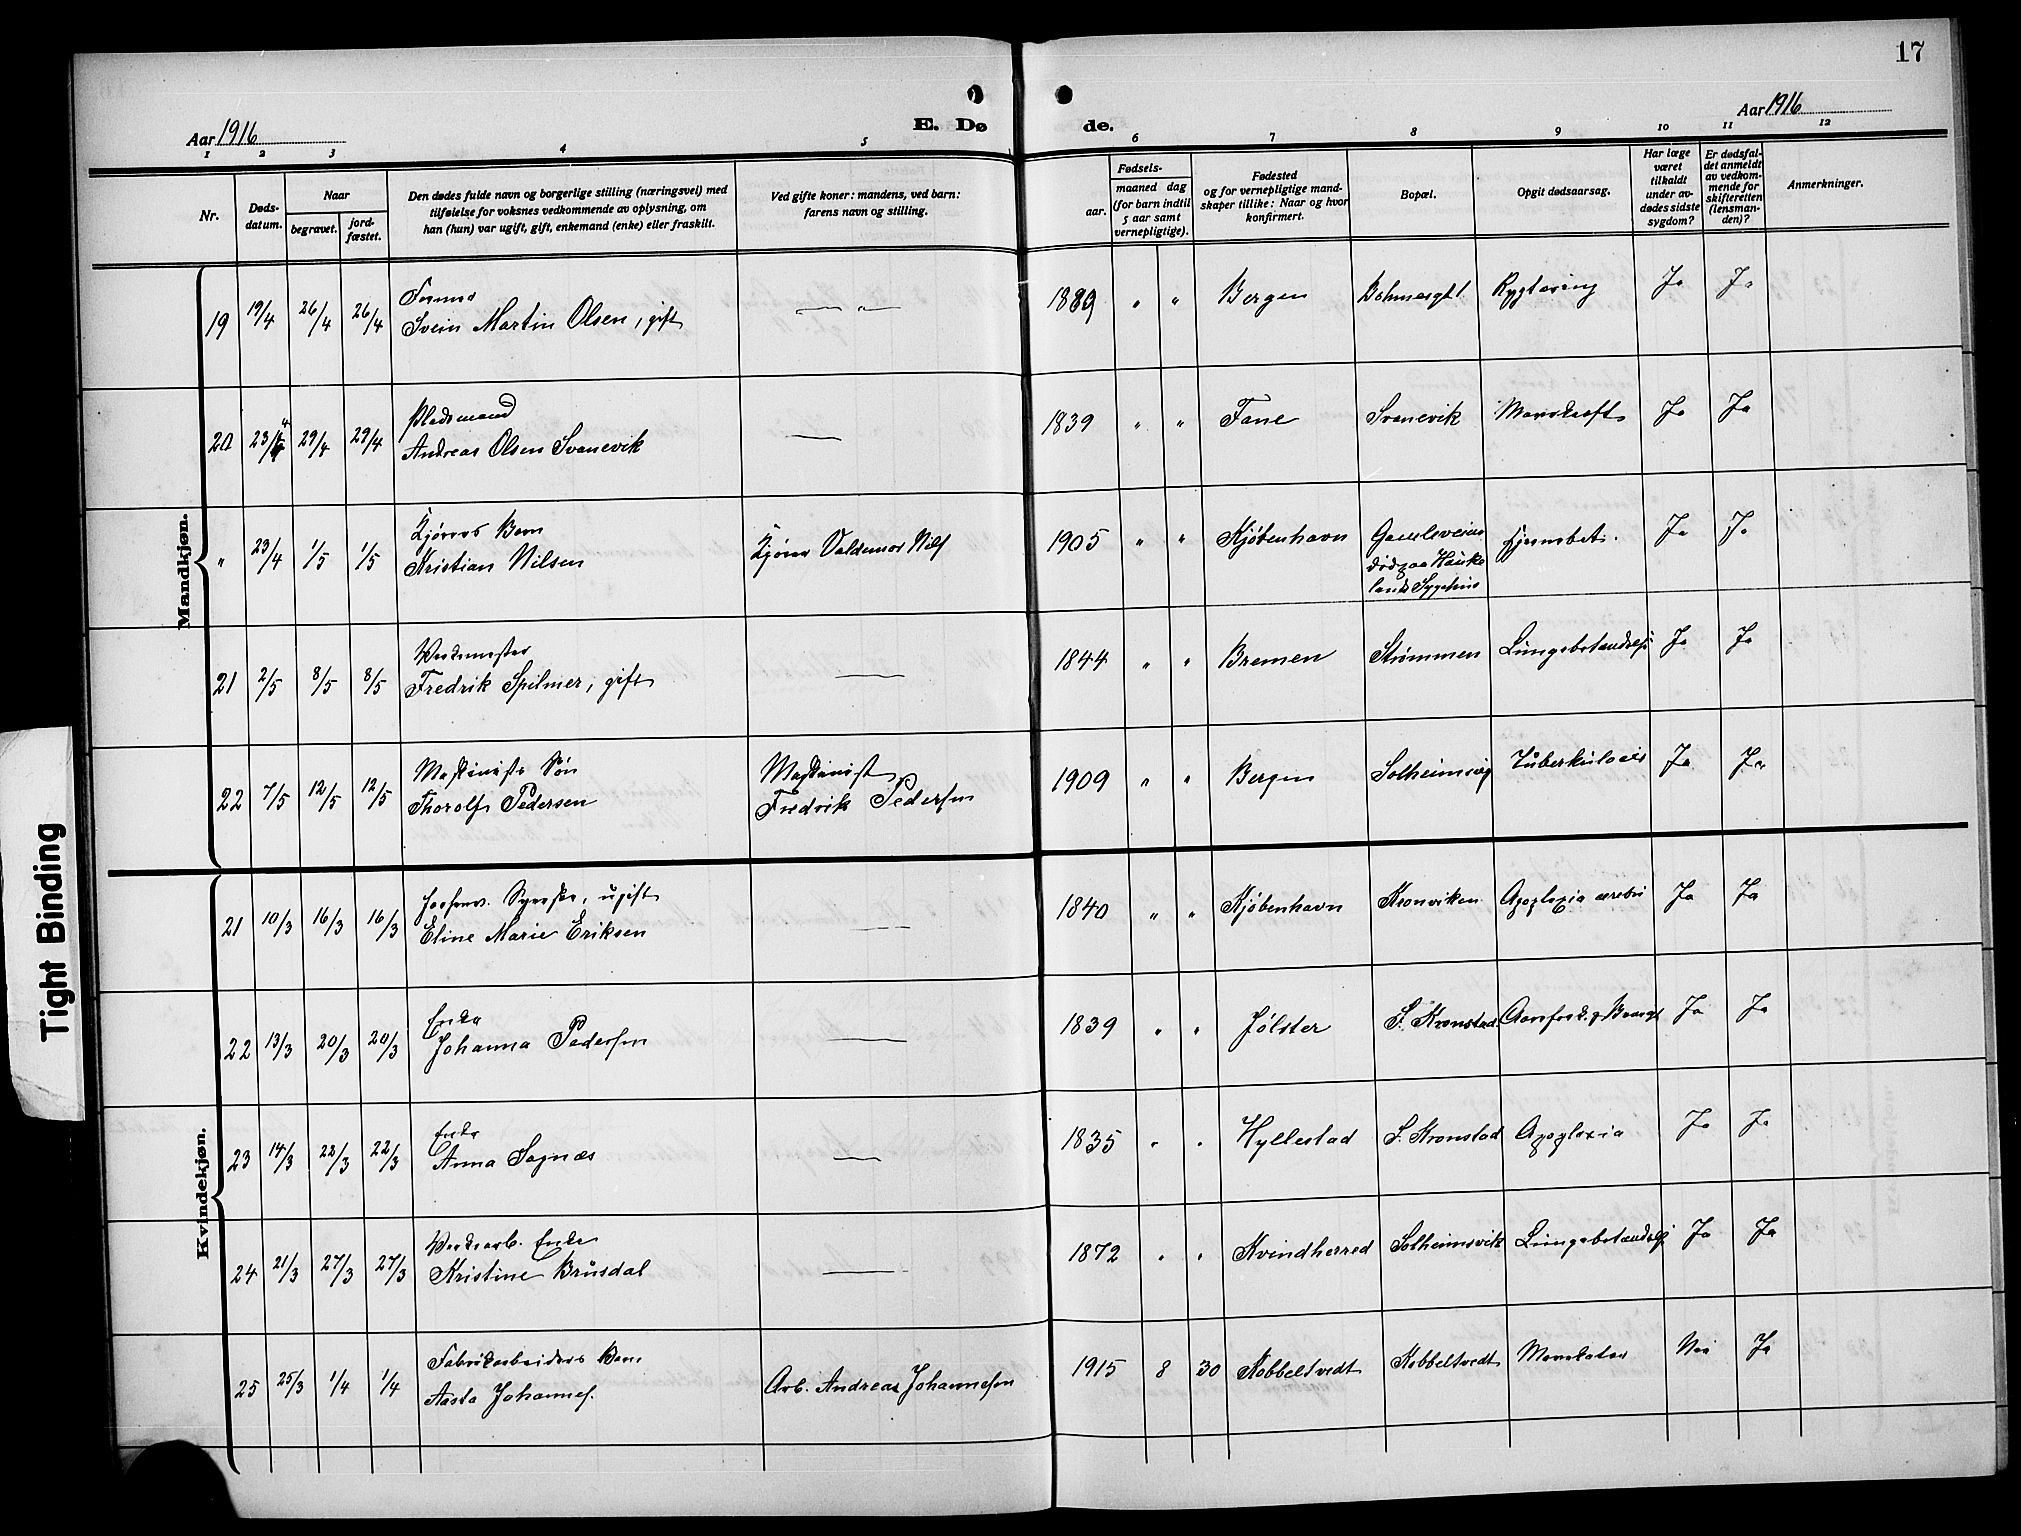 17
Aar 1916
E. Dø
de.
Aar 1916
1 2 3 4 5 6 7 8 9 10 11 12
Nr.
Døds-
datum.
Naar
begravet.
jord-
fæstet.
Den dødes fulde navn og borgerlige stilling (næringsvei) med
tilføielse for voksnes vedkommende av oplysning, om
han (hun) var ugift, gift, enkemand (enke) eller fraskilt.
Ved gifte koner: mandens, ved barn:
farens navn og stilling.
Fødsels-
aar.
maaned dag
(for barn indtil
5 aar samt
vernepligtige).
Fødested
og for vernepligtige mand-
skaper tillike: Naar og hvor
konfirmert.
Bopæl.
Opgit dødsaarsag.
Har læge
været
tilkaldt
under av-
dødes sidste
sygdom?
Er dødsfal-
det anmeldt
av vedkom-
mende for
skifteretten
(lensman-
den)?
Anmerkninger.
Mandkjøn.
Formand
19 19/4 26/4 26/4 Svein Martin Olsen, gift — " — 1889 " " Bergen Rygtæring Ja Ja
Pladsmand
20 23/4 29/4 29/4 Andreas Olsen Svanevik — 1839 " " Fane Svanevik Ja Ja
Kjørers Barn
" 23/4 1/5 1/5 Kristian Nilsen Kjører Valdemar Nils 1905 " " Kjøbenhavn Ja Ja
død paa Hauke
lands Sygehus
Verkmester
21 2/5 8/5 8/5 Fredrik Spilmer, gift — 1844 " " Bremen Strømmen Lungebetændelse Ja Ja
Maskinists Søn Maskinist
22 7/5 12/5 12/5 Thorolf Pedersen Fredrik Pedersen 1909 " " Bergen Solheimsvig Tuberkulosis Ja Ja
Kvindekjøn.
ugift
21 10/3 16/3 16/3 Eline Marie Eriksen — 1840 " " Kjøbenhavn Kronviken Apoplexia cerebri Ja Ja
Enke
22 13/3 20/3 20/3 Johanna Pedersen — 1839 " " Jølster S. Kronstad Ja Ja
Enke
23 14/3 22/3 22/3 Anna Sognæs — 1835 " " Hyllestad S. Kronstad Apoplexia Ja Ja
Verksarb. Enke
24 21/3 27/3 27/3 Kristine Brusdal — 1872 " " Kvindherred Solheimsvik Lungebetændelse Ja Ja
Fabrikarbeiders Barn
25 25/3 1/4 1/4 Aasta Johannes. Arb. Andreas Johannesen 1915 8 30 Kobbeltvedt Kobbeltvedt Nei Ja
Tight Binding